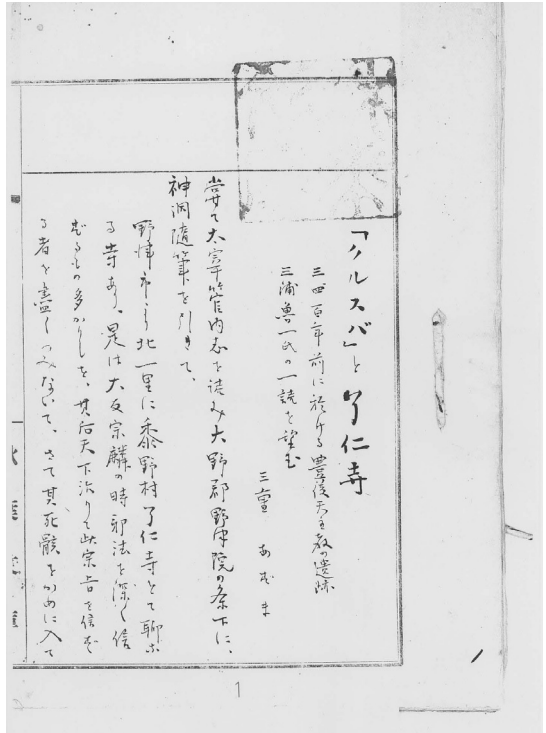 「クルスバ」と了仁寺
三四百年前に於ける豊後天主教の遺跡
三浦魯一氏の一読を望む
三重 あずま
嘗て太宰管内志を読み大野郡野津院の条下に、
神洞随筆を引きて、
野津市より北一里に黍野村了仁寺とて聊かなる
る寺あり、是は大友宗麟の時邪法を深く信
ずるもの多かりしを、其后天下治りて此宗旨を信ず
る者を盡くつみないて、さて其死骸をかめに入て
1